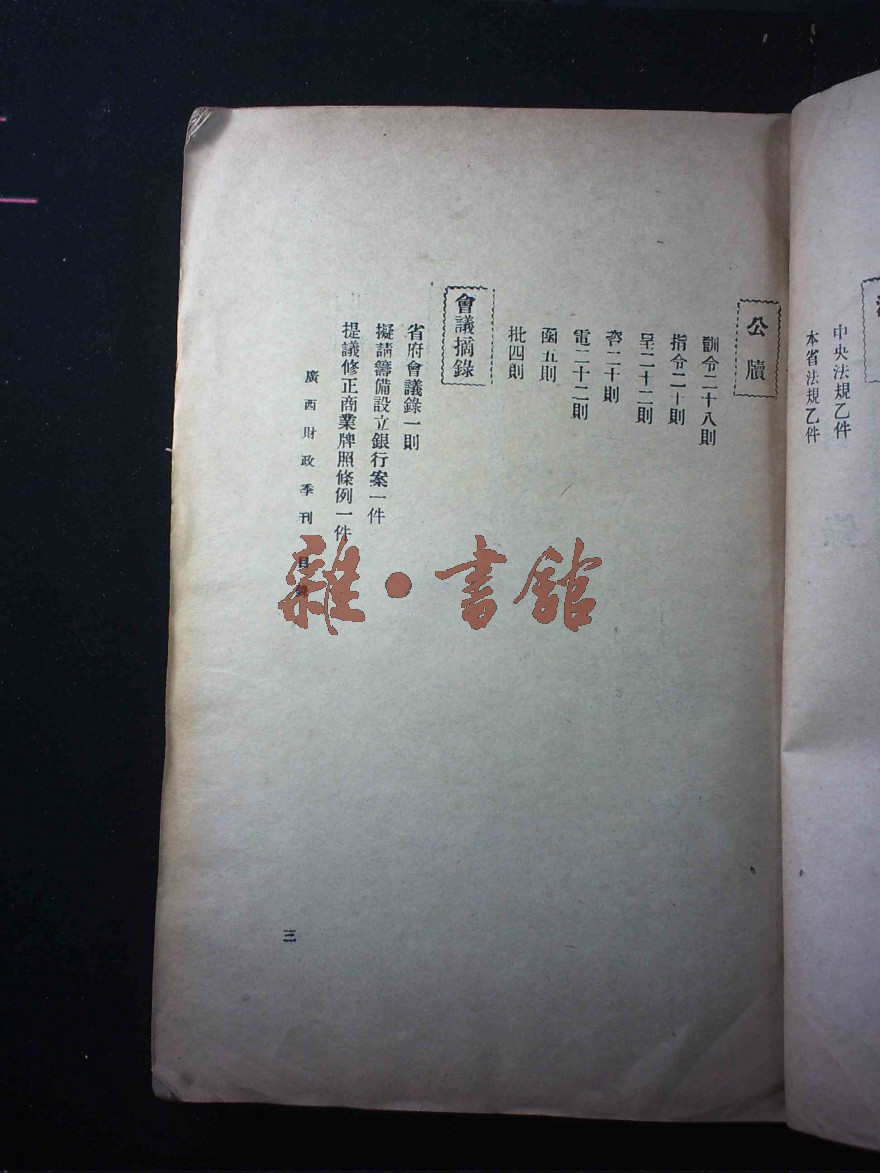 中央法規乙件
本省法規乙件
公牘
訓令二十八則
指令二十則
呈二十二則
咨二十則
電二十二則
函五則
批四則
會議摘錄
省府會議錄一則
擬請籌備設立銀行案一件
提議修正商業牌照條例一件
廣西財政季刊 目錄
三
雜·書館